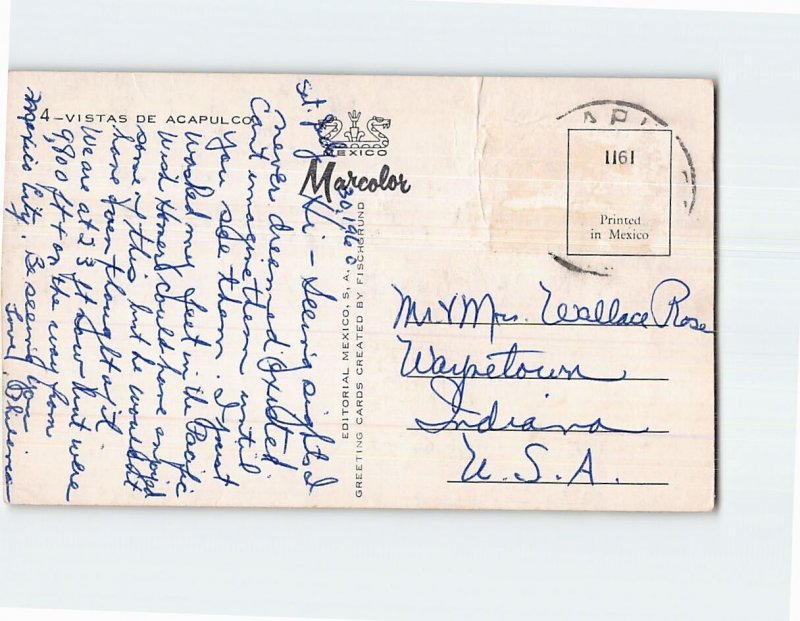 4-VISTAS DE ACAPULCO
MEXICO
Marcolor
1161
Printed
in Mexico
EDITORIAL MEXICO, S. A.
GREETING CARDS CREATED BY FISCHGRUND
Hi - Seeing sights I
never dreamed existed
Can't imagine them until
you see them. I just
washed my feet in the Pacific
Wish Homer could have enjoyed
some of this, but he wouldn't
have even thought of it
We are at 23 ft now but were
9,800 ft + on the way from
Mexico City. Be seeing you
Love,
Mr & Mrs. Wallace Rose
Waynetown
Indiana
U.S.A.